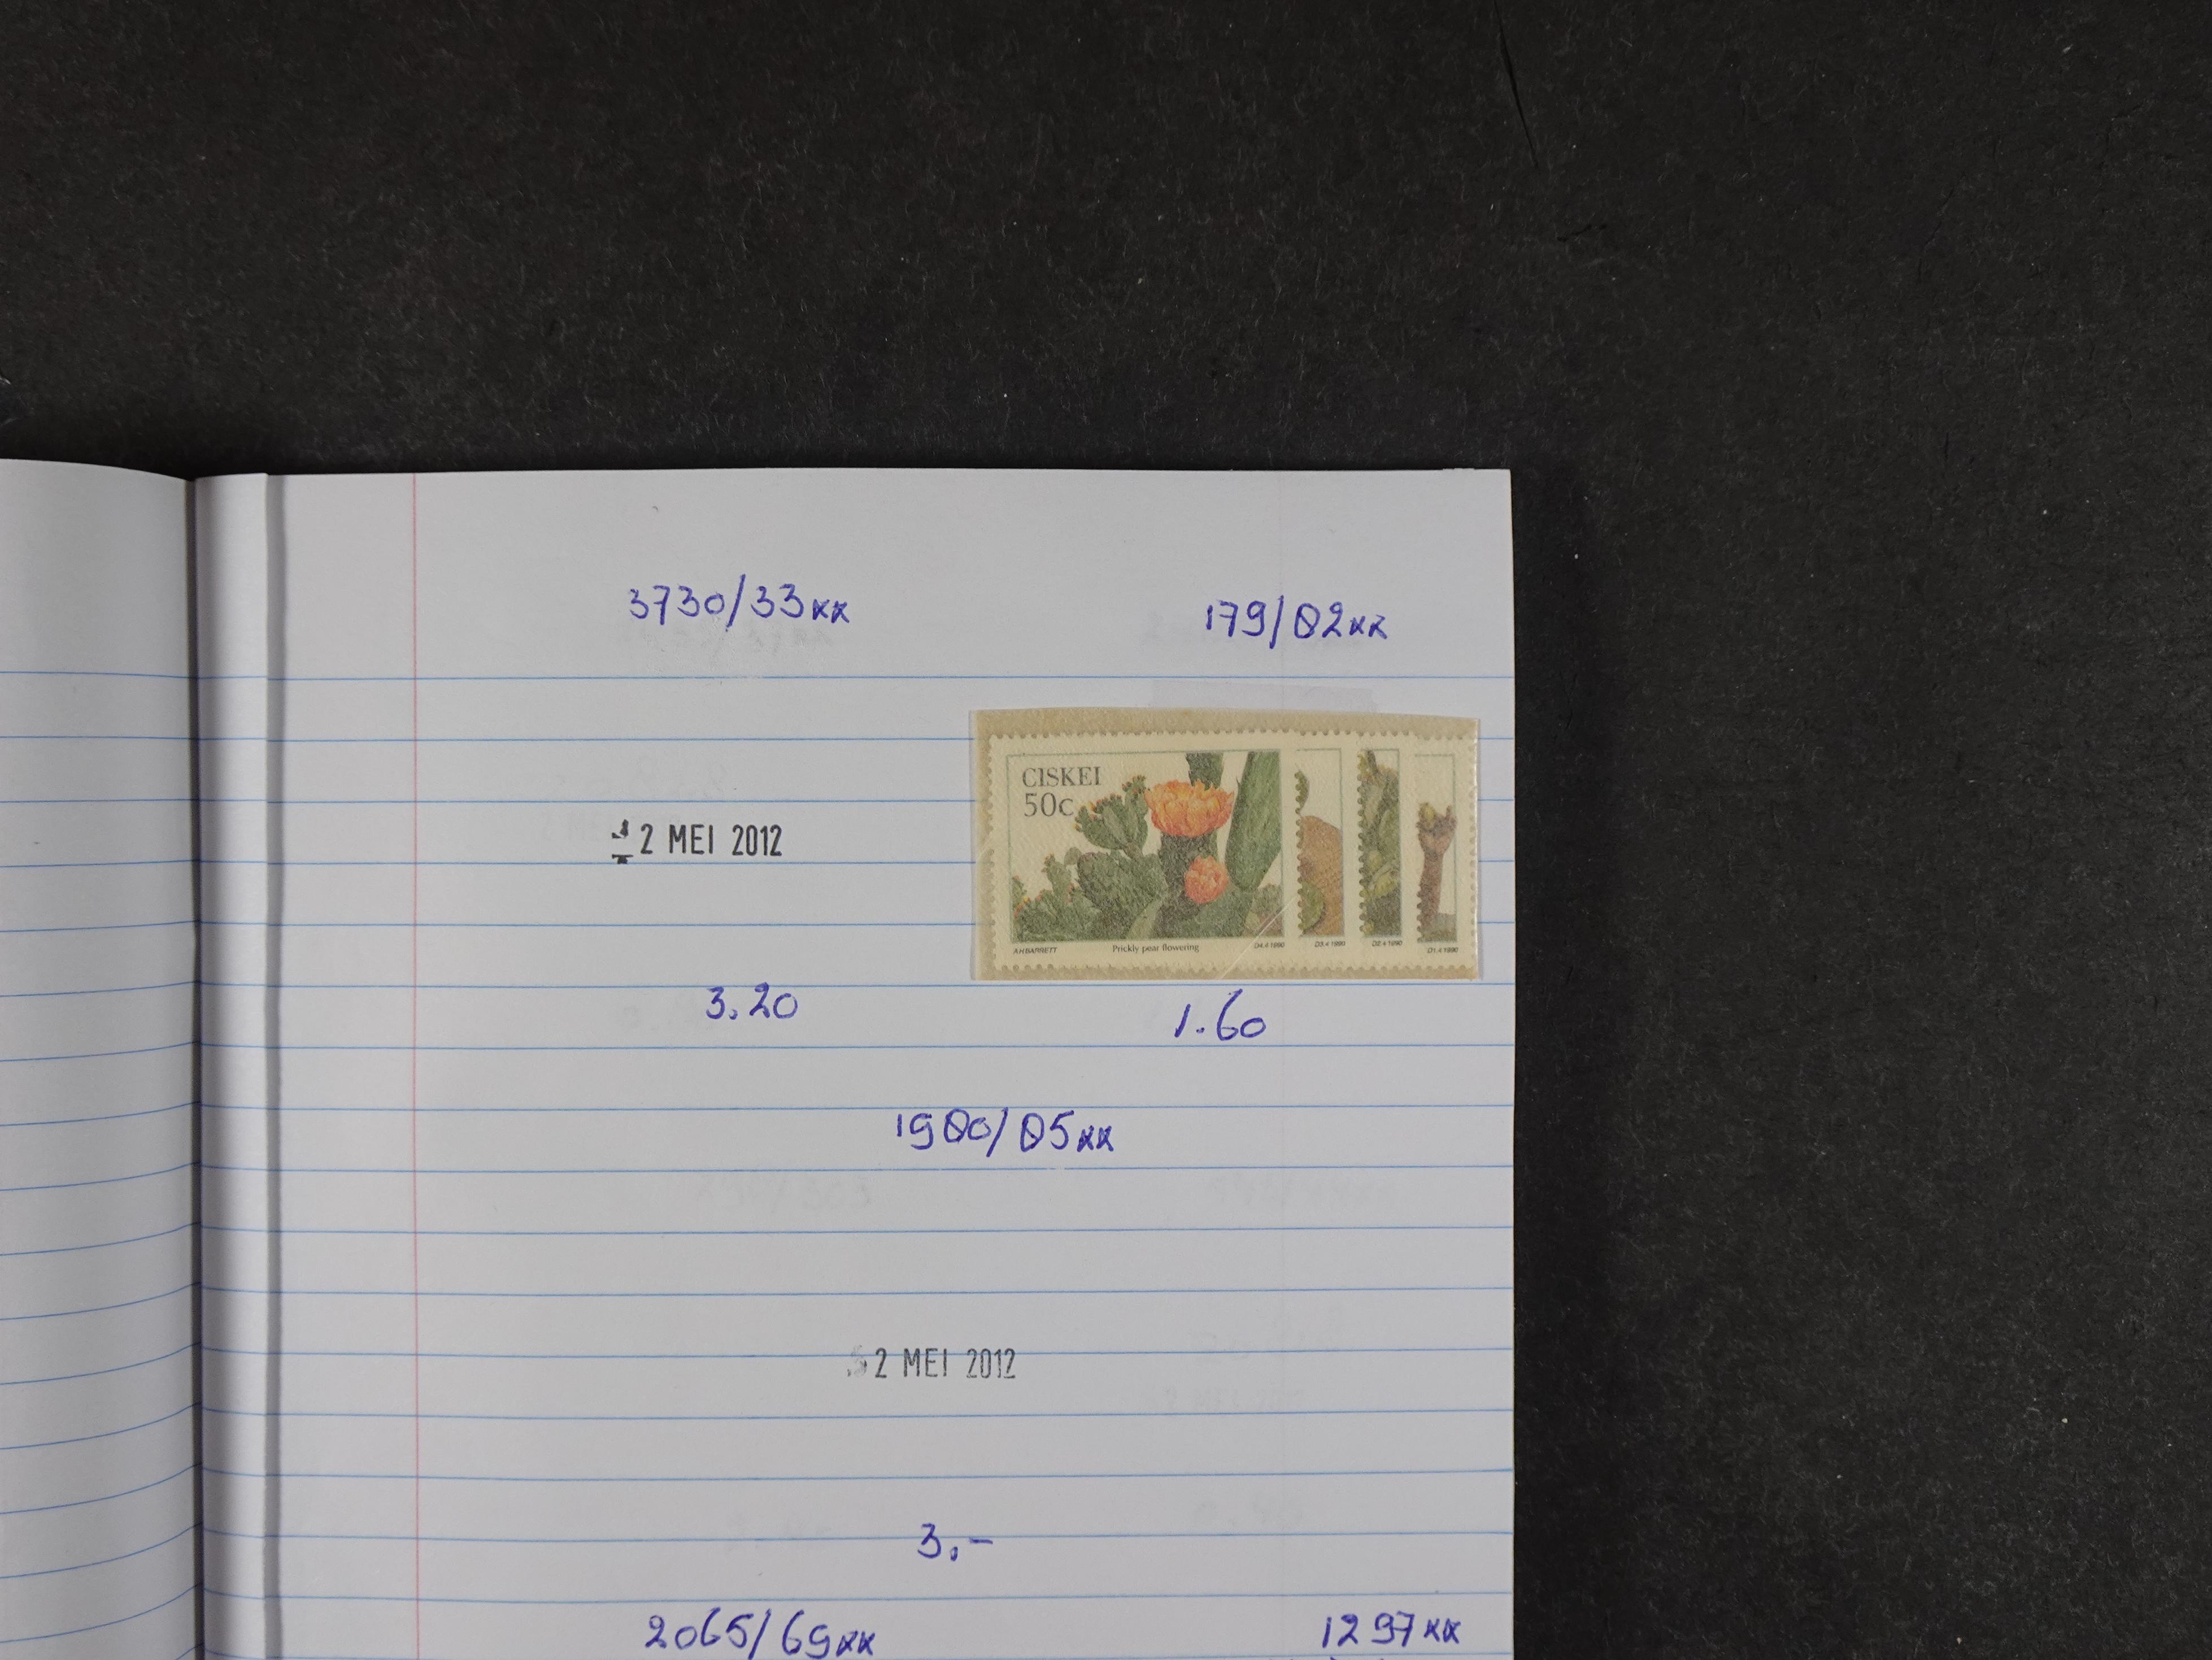 3730/33xx
179/82xx
CISKEI
50c
A H BARRETT
Prickly pear flowering
D4.4 1990
D3.4 1990
D2.4 1990
D1.4 1990
2 MEI 2012
3.20
1.60
1980/85xx
2 MEI 2012
3.-
2065/69xx
1297xx